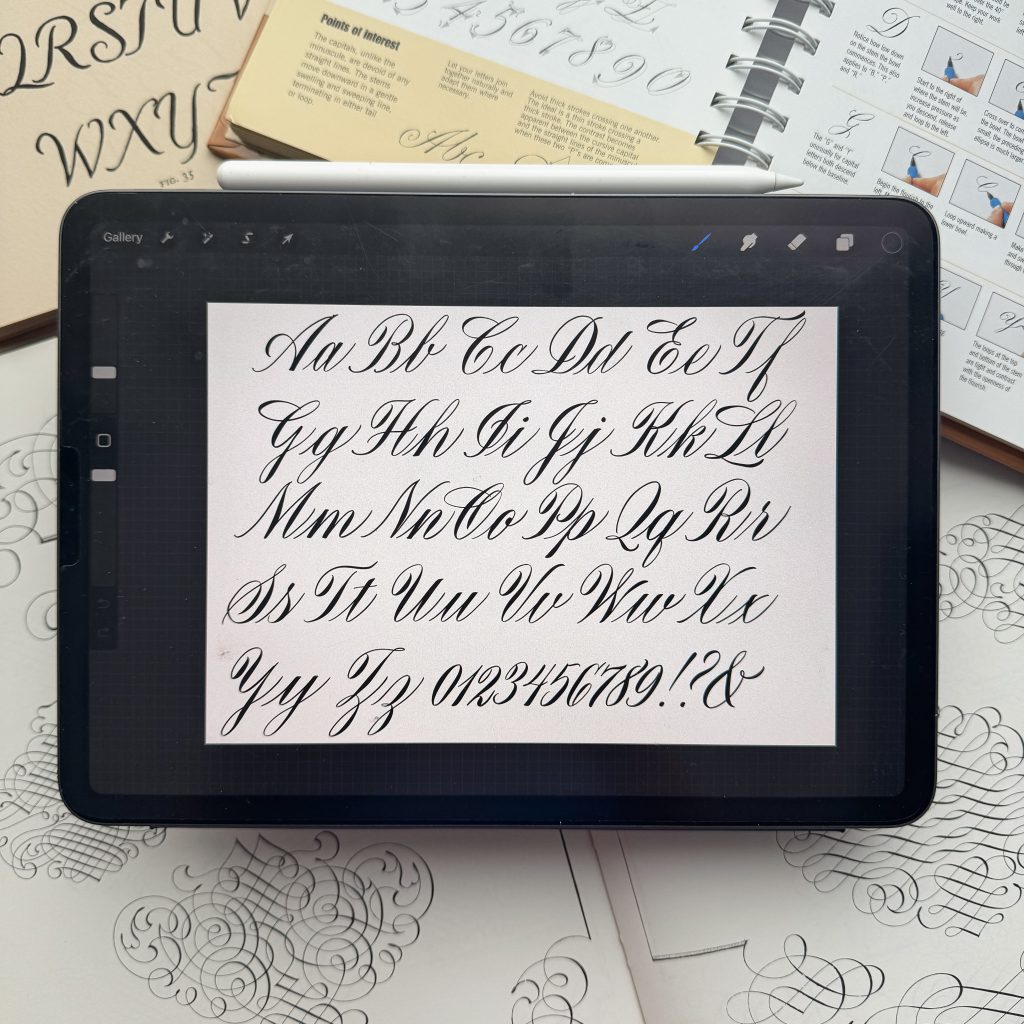 QRSTUV
WXY
FIG. 35
Points of Interest
The capitals, unlike the
minuscule, are devoid of any
straight lines. The stems
move downward in a gentle
swelling and sweeping line,
terminating in either tail
or loop.
Let your letters join
together naturally and
where necessary.
Avoid thick strokes crossing one another.
The ideal is a thin stroke crossing a
thick stroke. The contrast becomes
apparent between the curved capitals
and the straight lines of the
when these two
Abc
4 5 6 7 8 9 0
well to the right.
D
Notice how low down
on the stem the bowl
commences. This also
applies to "B," "P,"
and "R."
Start to the right of
where the stem will be,
increase pressure as
you descend, release
and loop to the left.
Cross over to
the bowl. The
small, the preceding
elipsis is much larger
G
The "G" and "Y"
unusually for capital
letters both descend
below the baseline.
Begin the flourish to the
left.
Loop upward making a
lower bowl.
The loops at the top
and bottom of the stem
are tight and contrast
with the openness of
the flourish.
Gallery
Aa Bb Cc Dd Ee Ff
Gg Hh Ii Jj Kk Ll
Mm Nn Oo Pp Qq Rr
Ss Tt Uu Vv Ww Xx
Yy Zz 0123456789!?&